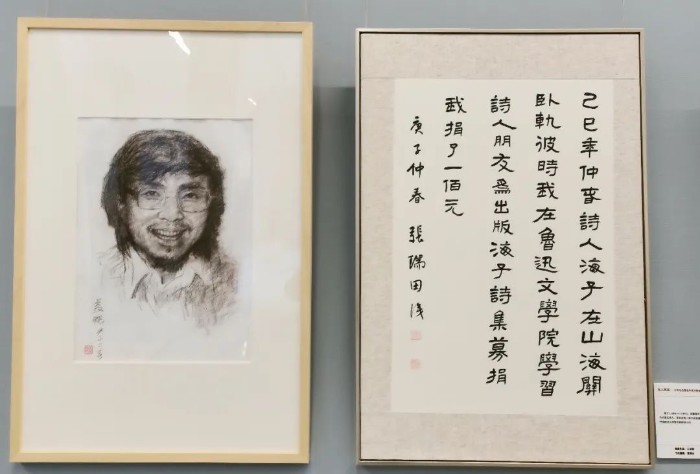 己巳年仲春詩人海子在山海關
臥軌彼時我在魯迅文學院學習
詩人朋友爲出版海子詩集募捐
我捐了一佰元
庚子仲春 張瑞田識